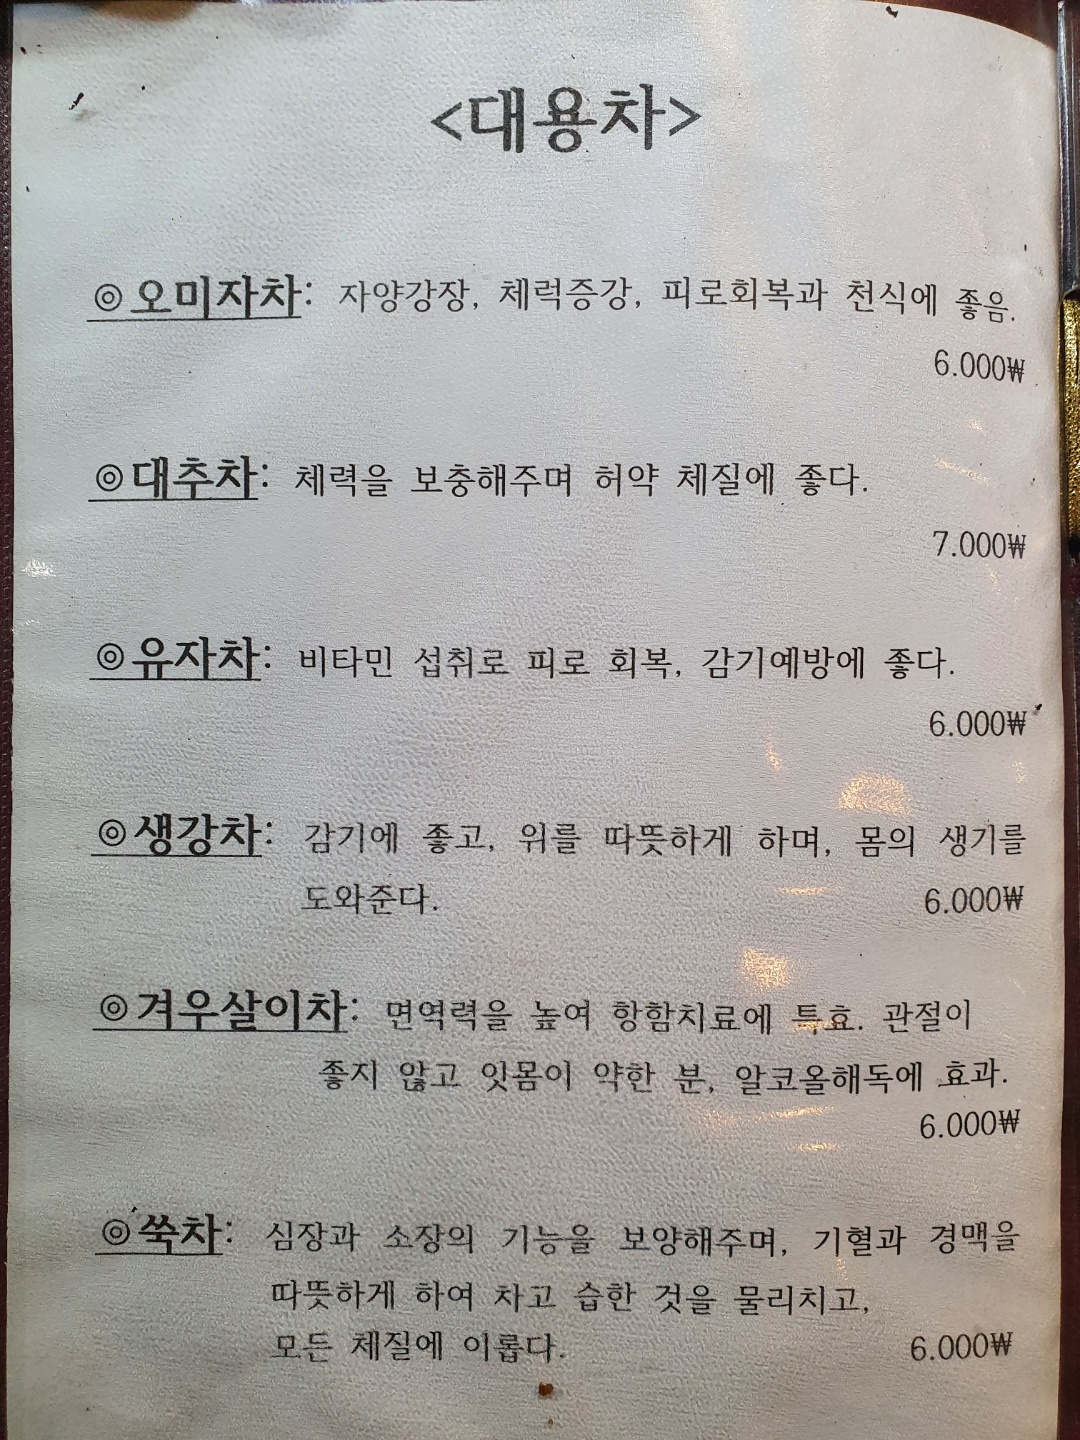 <대용차>
◎오미자차: 자양강장, 체력증강, 피로회복과 천식에 좋음.
6.000₩
◎대추차: 체력을 보충해주며 허약 체질에 좋다.
7.000₩
◎유자차: 비타민 섭취로 피로 회복, 감기예방에 좋다.
6.000₩
◎생강차: 감기에 좋고, 위를 따뜻하게 하며, 몸의 생기를
도와준다. 6.000₩
◎겨우살이차: 면역력을 높여 항함치료에 특효. 관절이
좋지 않고 잇몸이 약한 분, 알코올해독에 효과.
6.000₩
◎쑥차: 심장과 소장의 기능을 보양해주며, 기혈과 경맥을
따뜻하게 하여 차고 습한 것을 물리치고,
모든 체질에 이롭다. 6.000₩